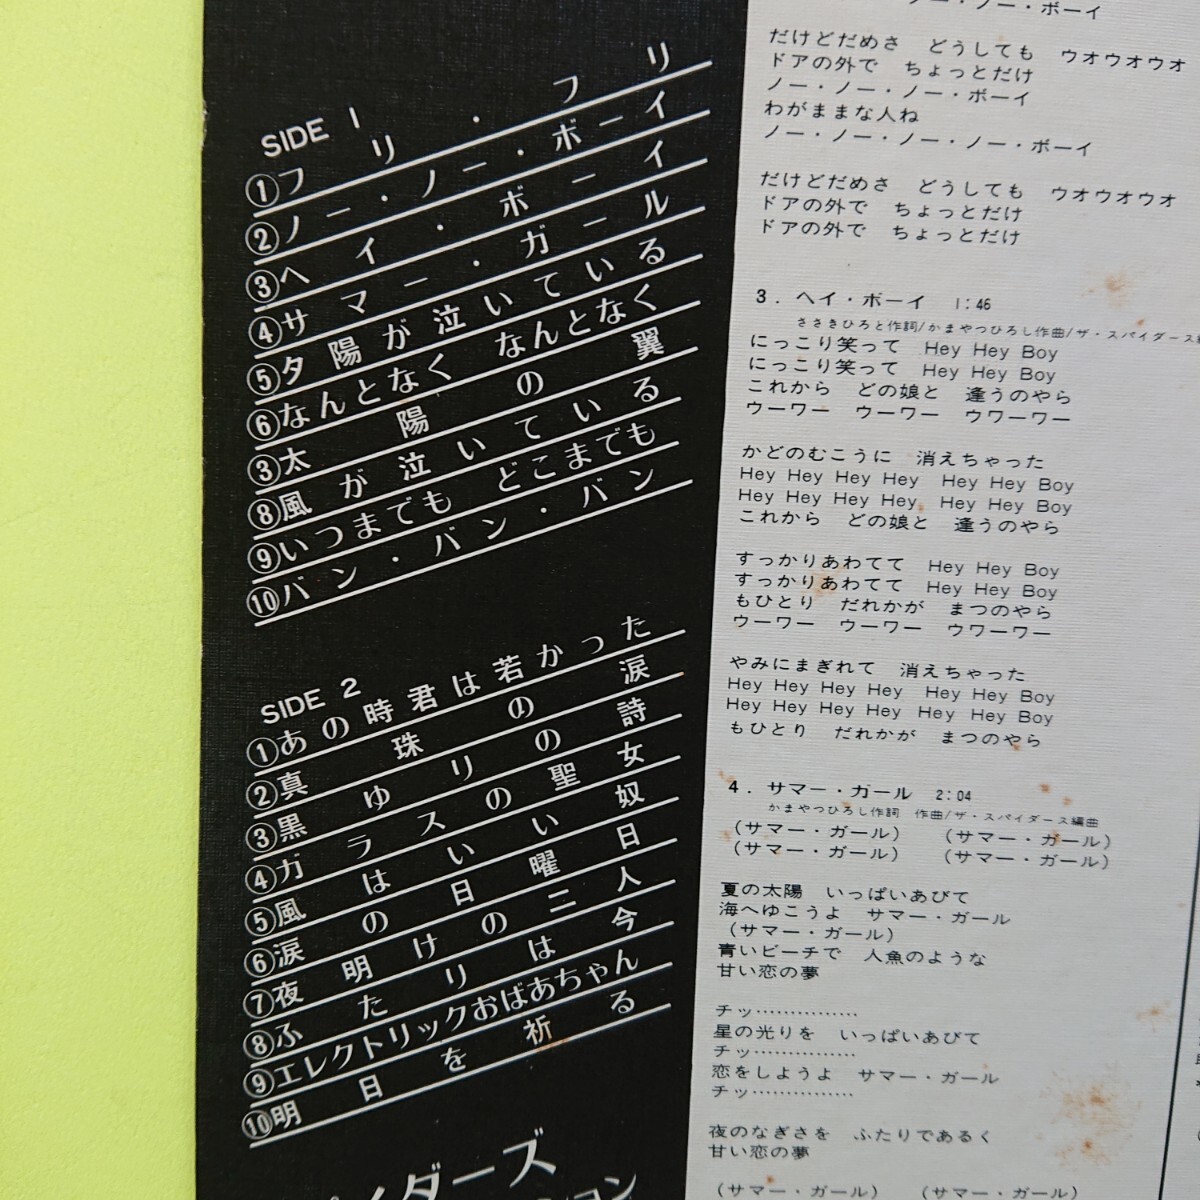 SIDE 1
①フリ・フリ
②ノー・ノー・ボーイ
③ヘイ・ボーイ
④サマー・ガール
⑤夕陽が泣いている
⑥なんとなく なんとなく
③太陽の翼
⑧風が泣いている
⑨いつまでも どこまでも
⑩バン・バン・バン
SIDE 2
①あの時君は若かった
②真珠の涙
③黒ゆりの詩
④ガラスの聖女
⑤風はいい奴
⑥涙の日曜日
⑦夜明けの二人
⑧ふたりは今
⑨エレクトリックおばあちゃん
⑩明日を祈る
イダーズ
ション
ノー・ノー・ボーイ
だけどだめさ どうしても ウオウオウオ
ドアの外で ちょっとだけ
ノー・ノー・ノー・ボーイ
わがままな人ね
ノー・ノー・ノー・ノー・ボーイ
だけどだめさ どうしても ウオウオウオ
ドアの外で ちょっとだけ
ドアの外で ちょっとだけ
3. ヘイ・ボーイ 1:46
ささきひろと作詞/かまやつひろし作曲/ザ・スパイダース編
にっこり笑って Hey Hey Boy
にっこり笑って Hey Hey Boy
これから どの娘と 逢うのやら
ウーワー ウーワー ウワーワー
かどのむこうに 消えちゃった
Hey Hey Hey Hey Hey Hey Boy
Hey Hey Hey Hey Hey Hey Boy
これから どの娘と 逢うのやら
すっかりあわてて Hey Hey Boy
すっかりあわてて Hey Hey Boy
もひとり だれかが まつのやら
ウーワー ウーワー ウワーワー
やみにまぎれて 消えちゃった
Hey Hey Hey Hey Hey Hey Boy
Hey Hey Hey Hey Hey Hey Boy
もひとり だれかが まつのやら
4. サマー・ガール 2:04
かまやつひろし作詞 作曲/ザ・スパイダース編曲
(サマー・ガール) (サマー・ガール)
(サマー・ガール) (サマー・ガール)
夏の太陽 いっぱいあびて
海へゆこうよ サマー・ガール
(サマー・ガール)
青いビーチで 人魚のような
甘い恋の夢
チッ……………
星の光りを いっぱいあびて
チッ……………
恋をしようよ サマー・ガール
チッ……………
夜のなぎさを ふたりであるく
甘い恋の夢
(サマー・ガール) (サマー・ガール)